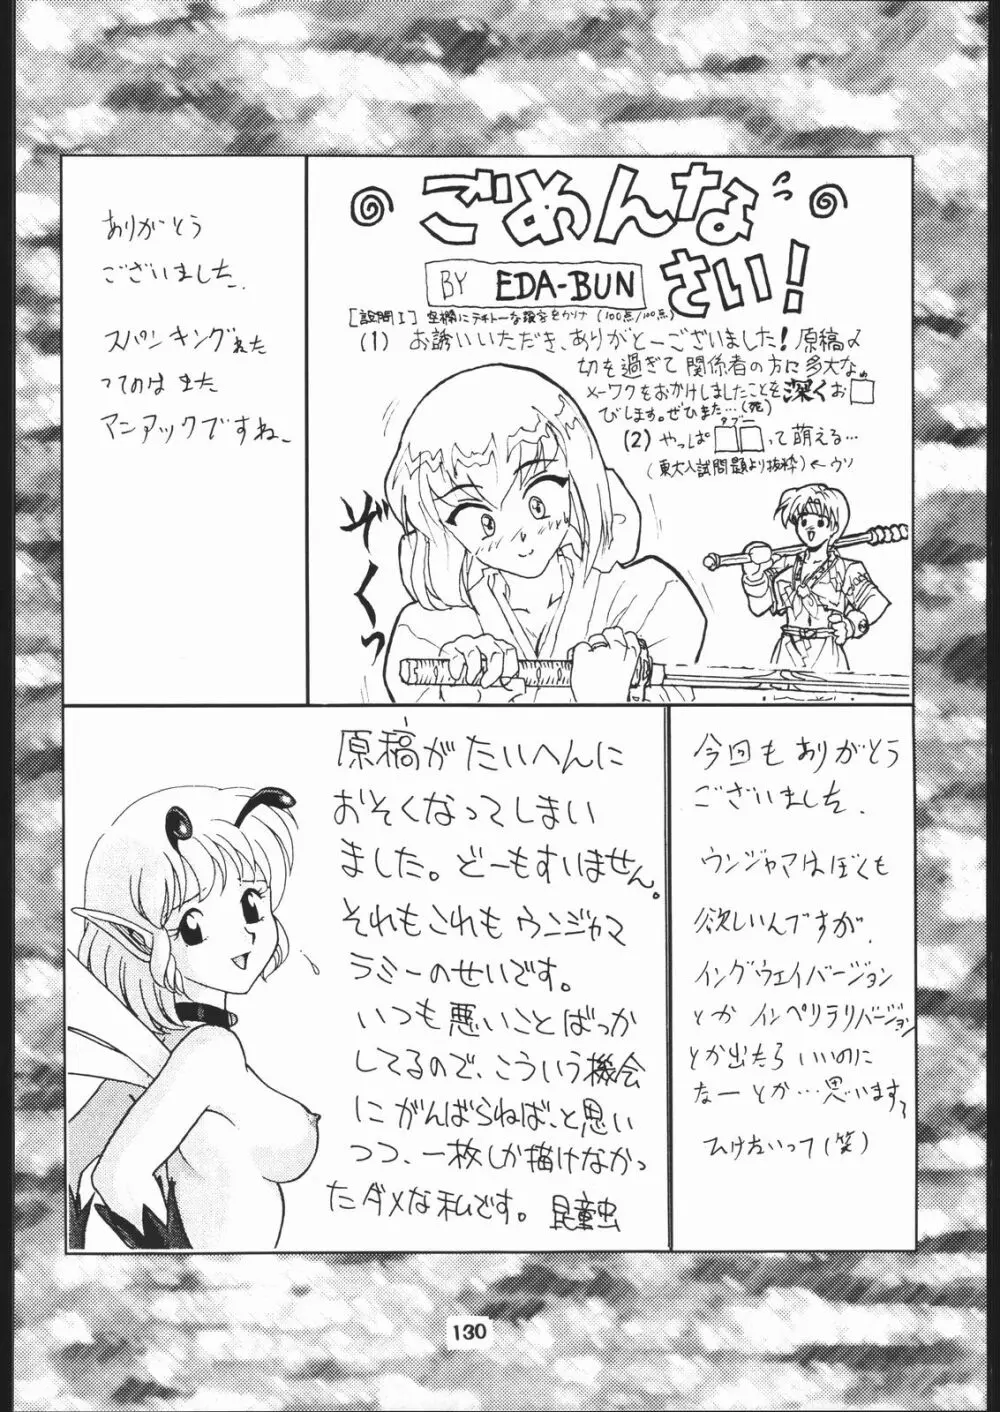 ありがとう
ございました.
スパンキングねた
ってのは また
マニアックですね.
ごめんな
さい!
BY EDA-BUN
[設問I] 空欄にテキトーな数字をかけ (100点/100点)
(1) お誘いいただき、ありがとーございました! 原稿〆
切を過ぎて関係者の方に多大な。
メーワクをおかけしましたことを深くお□
びします。ぜひまた…(死)
タブー
(2) やっぱ□□って萌える…
(東大入試問題より抜粋)←ウソ
ぞくっ
原稿がたいへんに
おそくなってしまい
ました。どーもすいません。
それもこれもウンジャマ
ラミーのせいです。
いつも悪いことばっか
してるので、こういう機会
にがんばらねば、と思い
つつ、一枚しか描けなかっ
たダメな私です。 昆童虫
今回も ありがとう
ございました.
ウンジャマはぼくも
欲しいんですが.
イングウェイバージョン
とか インペリテリバージョン
とか出たら いいのに
なー とか…思います。
ひけないって(笑)
130